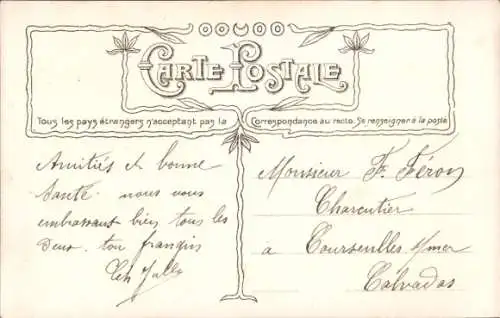 CARTE POSTALE
Tous les pays étrangers n'acceptent pas la Correspondance au recto. Se renseigner à la poste
Amitiés et bonne
Santé. nous vous
embrassant bien tous les
deux. ton frangin
Monsieur F. Féron
Charcutier
à Courseulles s/mer
Calvados